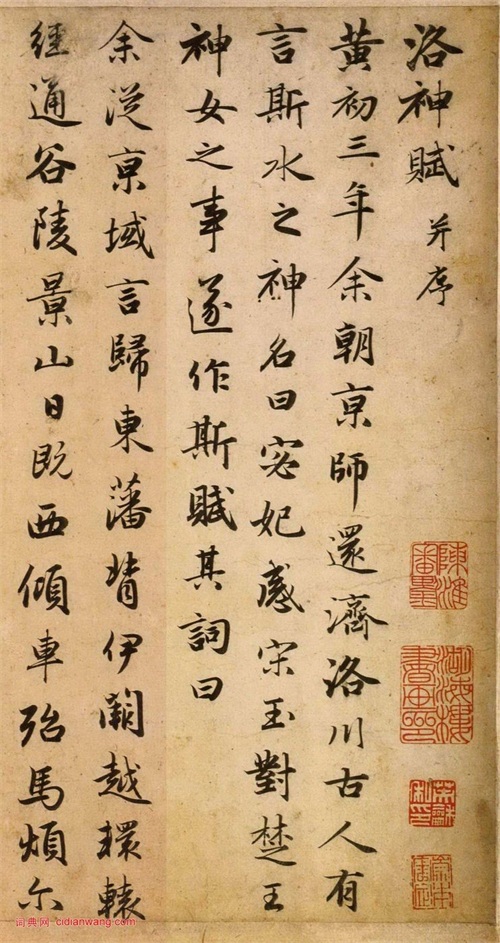 洛神賦 并序
黃初三年余朝京師還濟洛川古人有
言斯水之神名曰宓妃感宋玉對楚王
神女之事遂作斯賦其詞曰
余從京域言歸東藩背伊闕越轘轅
經通谷陵景山日既西傾車殆馬煩尔
词典网 cidianwang.com